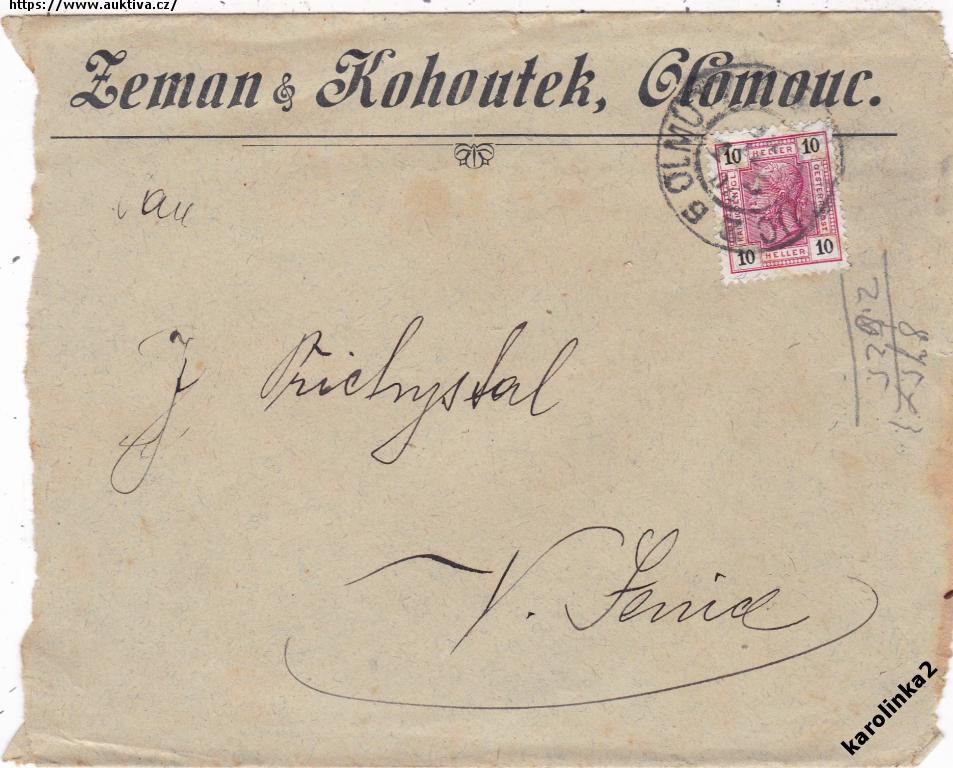 https://www.auktiva.cz/
Zeman & Kohoutek, Olomouc.
OLMÜ
10 HELLER 10
10 HELLER 10
Pan
J Přichystal
V. Senice
karolinka2